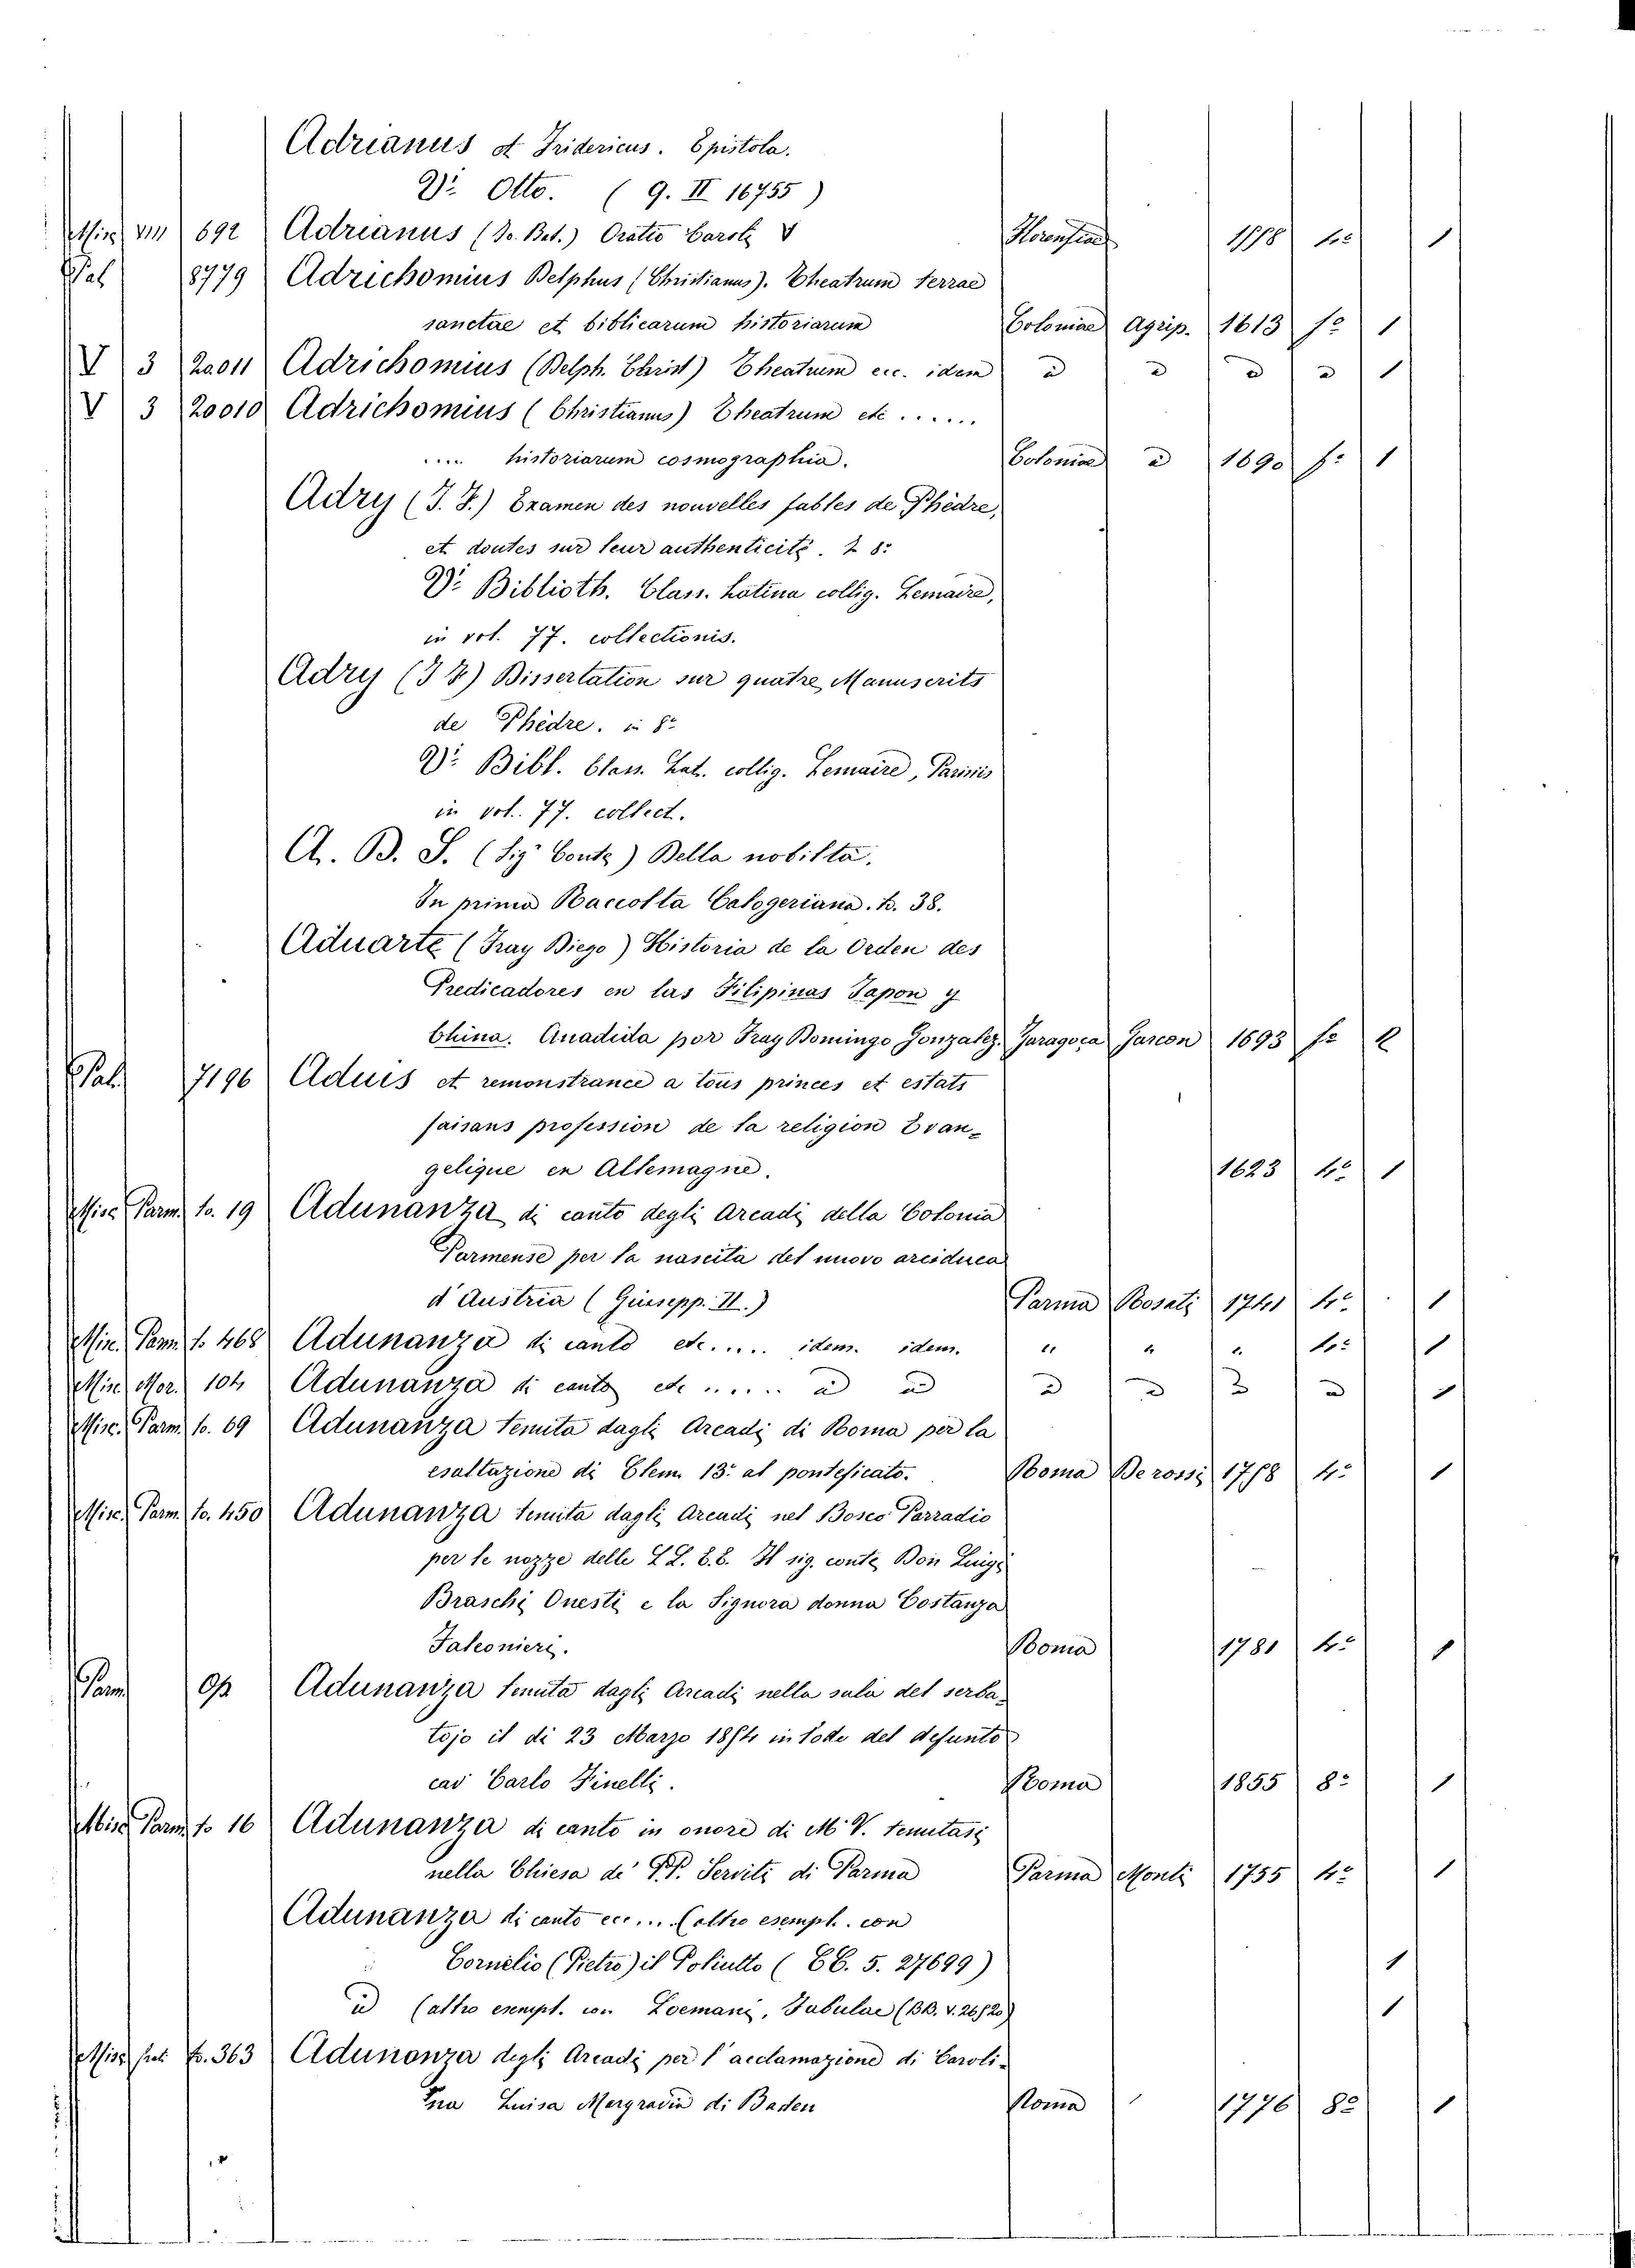 Adrianus et Fridericus. Epistola.
Vi: Otto. ( 9. II 16755 )
Misc VIII 692 Adrianus (Jo. Bat.) Oratio Caroli V Florentiae 4º 1
Pal 8779 Adrichomius Delphus (Christianus). Theatrum terrae
sanctae et biblicarum historiarum Coloniae Agrip. 1613 fº 1
V 3 20011 Adrichomius (Delph. Christ) Theatrum ecc. idem 1
V 3 20010 Adrichomius (Christianus) Theatrum etc ......
.... historiarum cosmographia. Coloniae 1690 fº 1
Adry (J. F.) Examen des nouvelles fables de Phèdre,
et doutes sur leur authenticité. 8º
Vi: Biblioth. Class. Latina collig. Lemaire,
in vol. 77. collectionis.
Adry (J F) Dissertation sur quatre Manuscrits
de Phèdre. in 8º
Vi: Bibl. Class. Lat. collig. Lemaire, Parisiis
in vol. 77. collect.
A. B. S. (Sigr Conte) Della nobiltà.
In prima Raccolta Calogeriana. t. 38.
Aduarte (Fray Diego) Historia de la Orden des
Predicadores en las Filipinas Japon y
China. Anadida por Fray Domingo Gonzalez. Zaragoza Gascon 1693 fº 2
Pal. 7196 Aduis et remonstrance a tous princes et estats
faisans profession de la religion Evan-
gelique en Allemagne. 1623 4º 1
Misc Parm. to. 19 Adunanza di canto degli Arcadi della Colonia
Parmense per la nascita del nuovo arciduca
d'Austria (Giusepp. II.) Parma Rosati 1741 4º 1
Misc. Parm. t. 468 Adunanza di canto etc. .... idem. idem. " " " 4º 1
Misc. Mor. 104 Adunanza di canto etc ..... 1
Misc. Parm. to. 69 Adunanza tenuta dagli Arcadi di Roma per la
esaltazione di Clem. 13º al pontificato. Roma De rossi 4º 1
Misc. Parm. to. 450 Adunanza tenuta dagli Arcadi nel Bosco Parradio
per le nozze delle LL. EE. Il sig. conte Don Luigi
Braschi Onesti e la Signora donna Costanza
Falconieri. Roma 1781 4º 1
Parm Adunanza tenuta dagli Arcadi nella sala del serba-
tojo il di 23 Marzo 1854 in lode del defunto
cav Carlo Finelli. Roma 1855 8º 1
Misc Parm to 16 Adunanza di canto in onore di M. V. tenutasi
nella Chiesa de' P.P. Serviti di Parma Parma Monti 1755 4º 1
Adunanza di canto ecc... (altro esempl. con
Cornelio (Pietro) il Poliutto ( CC. 5. 27699) 1
id (altro esempl. con Loemani, Fabulae (BB. V. 26820) 1
Misc fo. 363 Adunanza degli Arcadi per l'acclamazione di Caroli-
na Luisa Margravia di Baden Roma 1776 8º 1